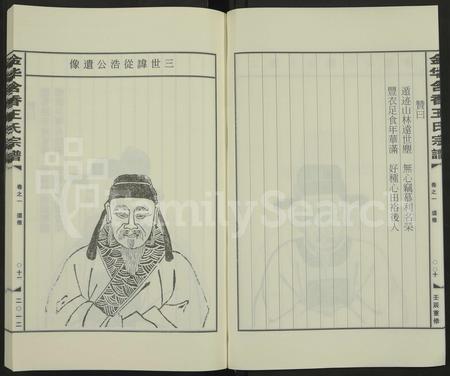 金华含香王氏宗譜
卷之一 遺像
〇一〇
壬辰重修
贊曰
遁迹山林遠世塵 無心竊慕利名榮
豐衣足食年華滿 好種心田裕後人
三世諱從浩公遺像
金华含香王氏宗譜
卷之一 遺像
〇一一
二〇一二
FamilySearch